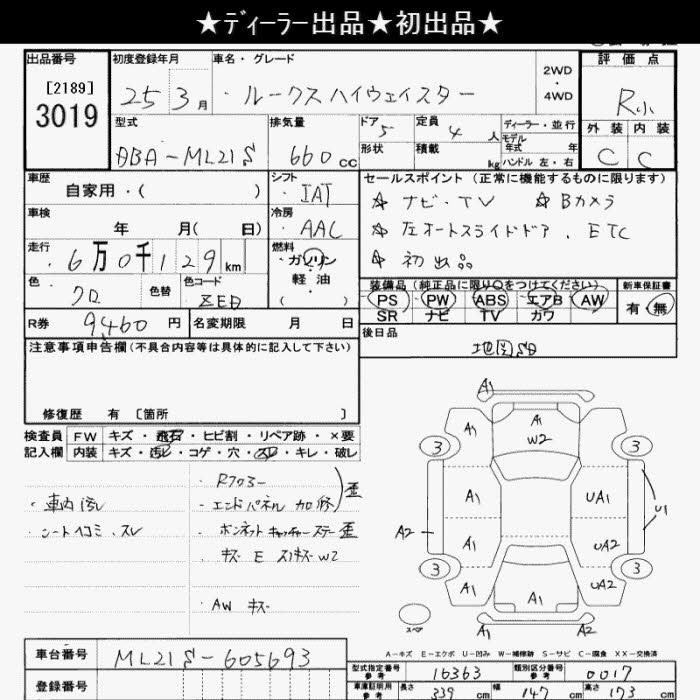 ★ディーラー出品★初出品★
出品番号
[2189]
3019
初度登録年月
25 3月
車名・グレード
・ルークスハイウェイスター
2WD
・
4WD
評価点
R小
外装 内装
C C
型式
DBA-ML21S
排気量
660cc
ドア 5
形状
定員 4人
積載 kg
ディーラー・並行
モデル年式 年
ハンドル 左・右
車歴
自家用・( )
シフト
・IAT
セールスポイント (正常に機能するものに限ります)
☆ ナビ・TV ☆ Bカメラ
☆ 左オートスライドドア、ETC
☆ 初出品
車検
年 月( 日)
冷房
AAC
走行
6万0千129km
燃料
ガソリン
・
軽油
( )
色
クロ
色替
色コード
装備品 (純正品に限り○をつけてください)
PS PW ABS エアB AW
SR ナビ TV カワ
新車保証書
有・無
R券 9460円
名変期限 月 日
後日品
注意事項申告欄(不具合内容等は具体的に記入して下さい)
修復歴 有 [箇所 ]
検査員記入欄
FW キズ・飛石・ヒビ割・リペア跡・×要
内装 キズ・汚レ・コゲ・穴・スレ・キレ・破レ
・車内汚レ
・シートヘコミ、スレ
・Rフロアー
・エンドパネル 加修 歪
・ボンネットキャッチャーステー歪
キズ E スリキズW2
・AW キズ
A1
A1 A1 W2
3 3
A1 UA1 U1
A2 A1 UA2
3 3
A1 A1 UA2
スペア
A1 A2
A-キズ E-エクボ U-凹み W-補修跡 S-サビ C-腐食 XX-交換済
車台番号 ML21S-605693
登録番号
型式指定番号 参考 16363
類別区分番号 参考 0017
車庫証明用 参考 長さ 339cm 幅 147cm 高さ 173cm